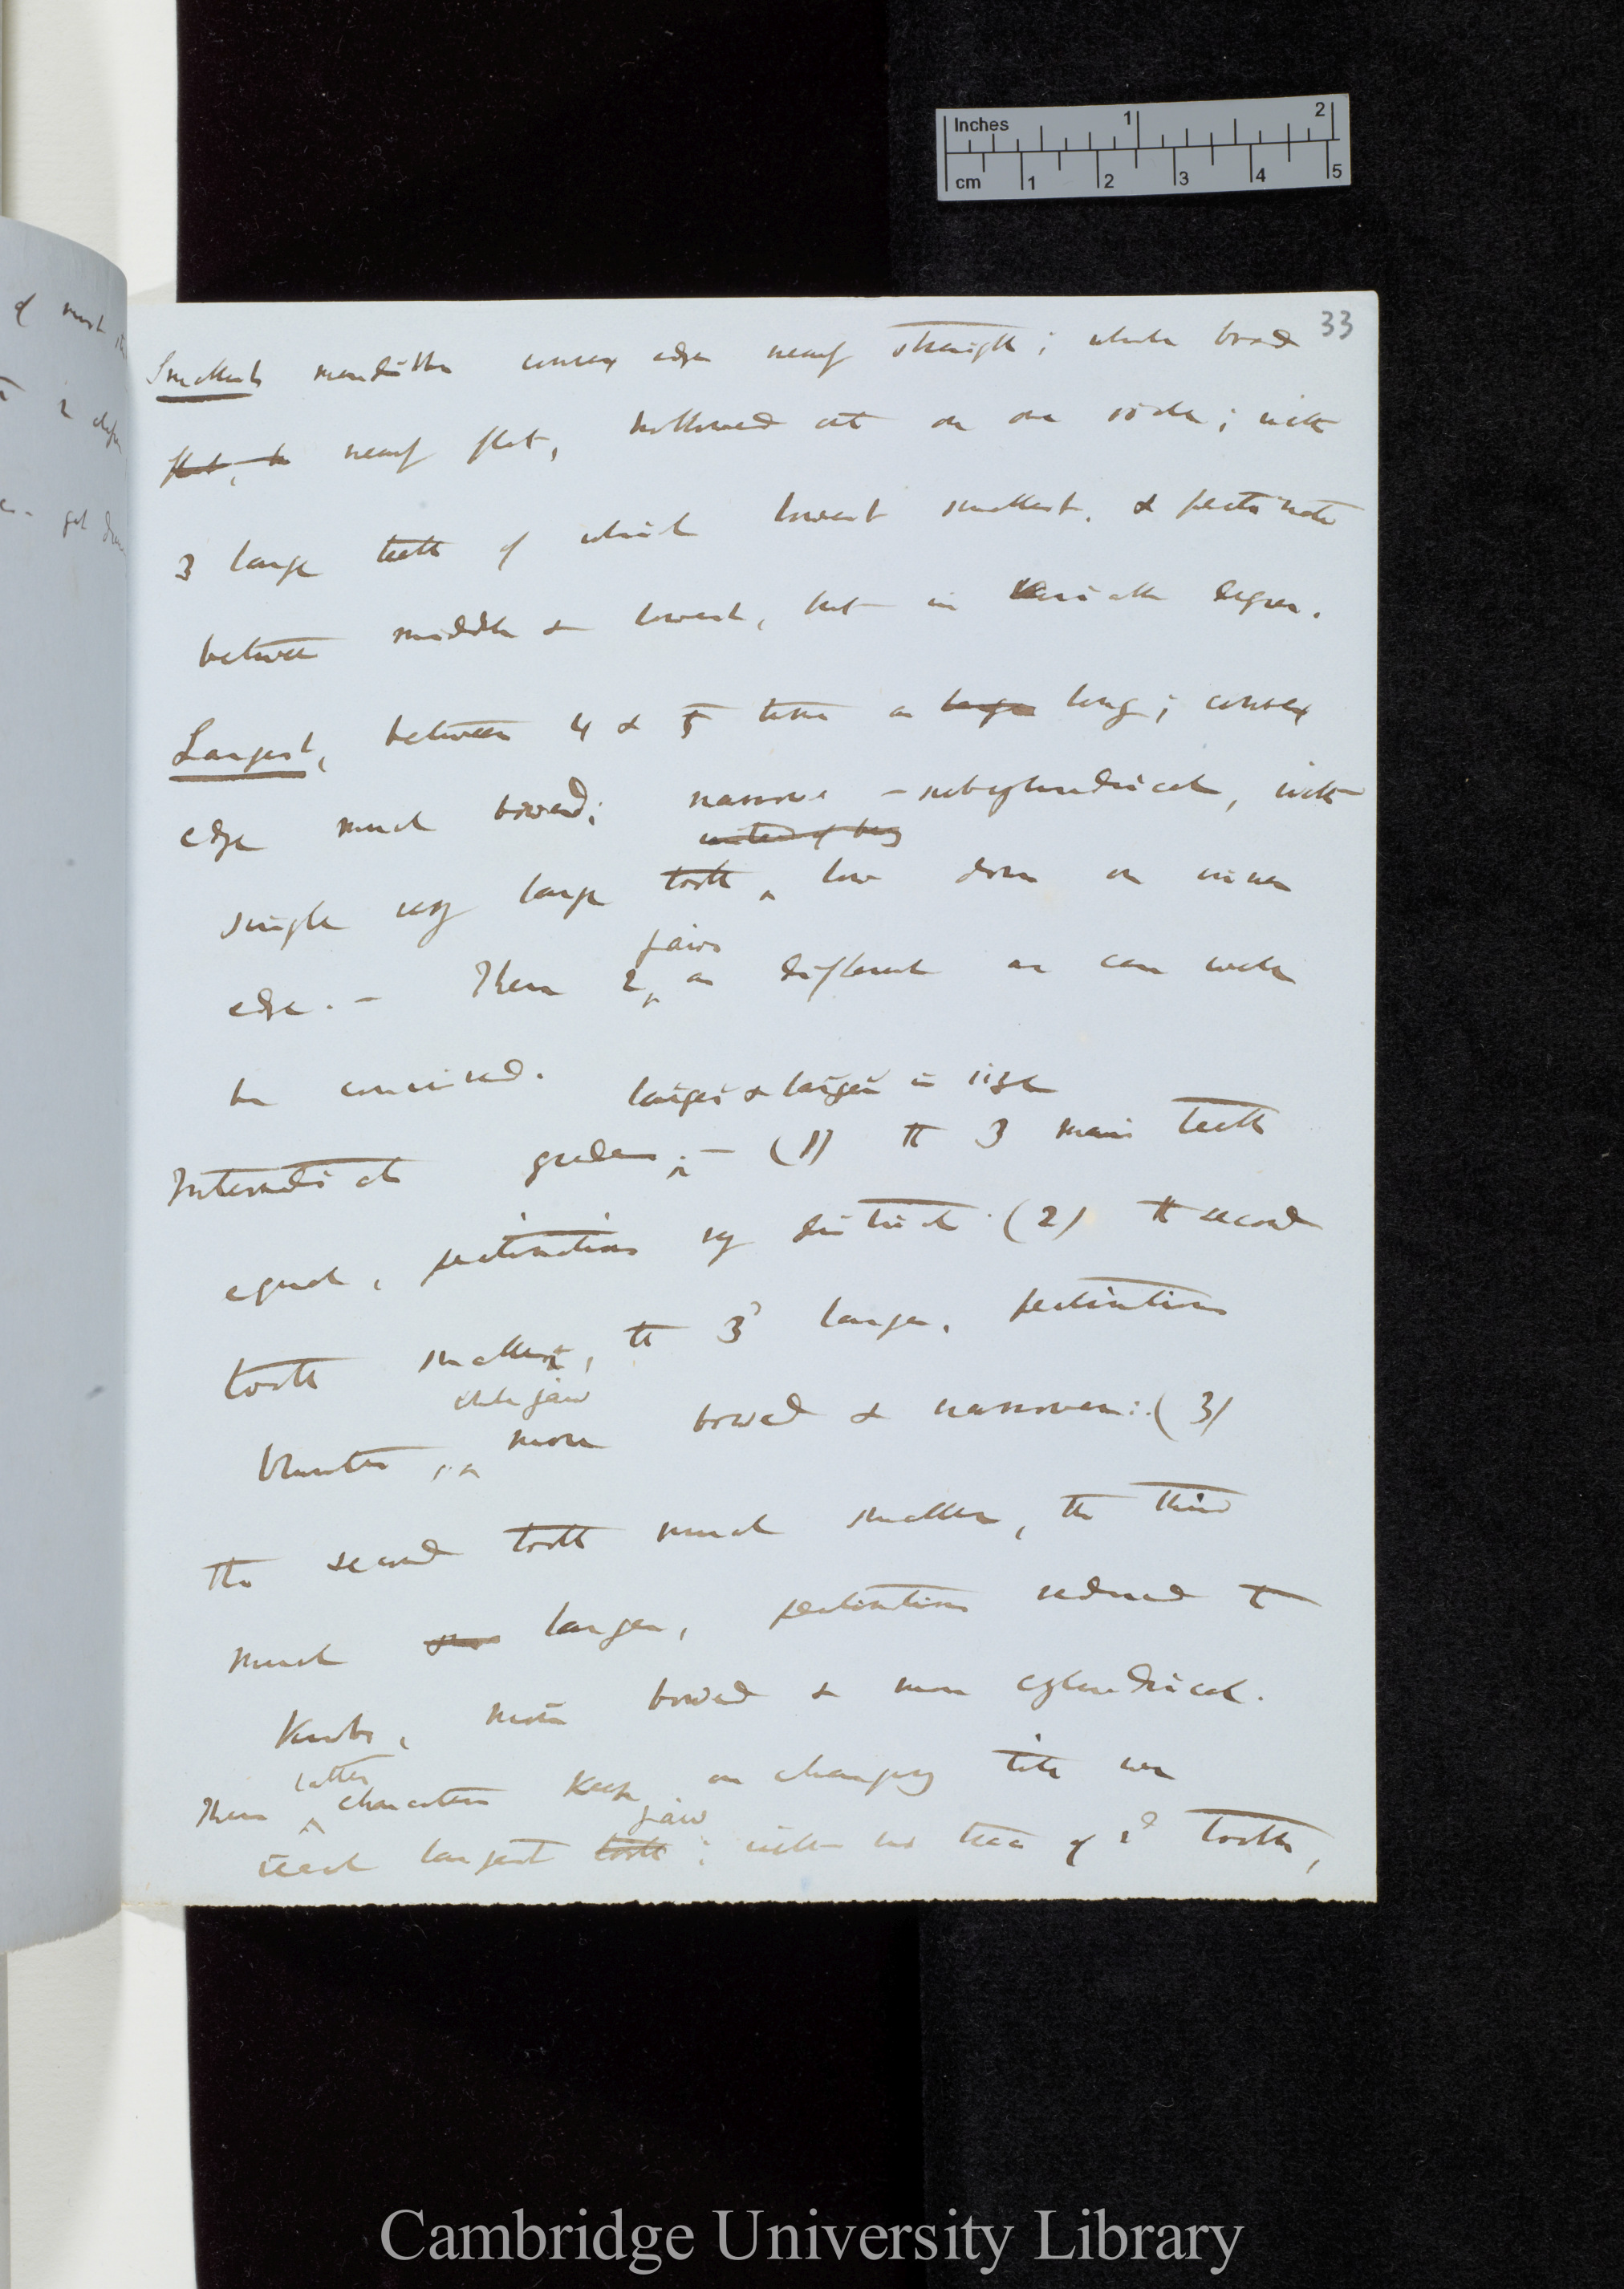 Inches 1 2
cm 1 2 3 4 5
33
Smallest mandible convex edge nearly straight; whole broad
flat, nearly flat, hollowed out on one side; with
3 large teeth of which lowest smallest, & pectinate
between middle & lowest, but in variable degree.
Largest, between 4 & 5 times as large long; convex
edge much bowed; narrow – subcylindrical, with
instead of being
single very large tooth ^ low down on inner
pairs
edge. – These 2 ^ as different as can well
be conceived.
larger & larger in size
Intermediate grades ^ – (1) the 3 main teeth
equal, pectinations very distinct. (2) the second
tooth smallest, the 3d larger, pectinations
whole jaw
blunter, ^ more bowed & narrower: (3)
the second tooth much smaller, the third
much larger, pectinations reduced to
knobs, more bowed & more cylindrical.
latter
These ^ characters keep on changing till we
jaw
reach largest tooth; with no trace of 2d tooth,
of most
got
Cambridge University Library